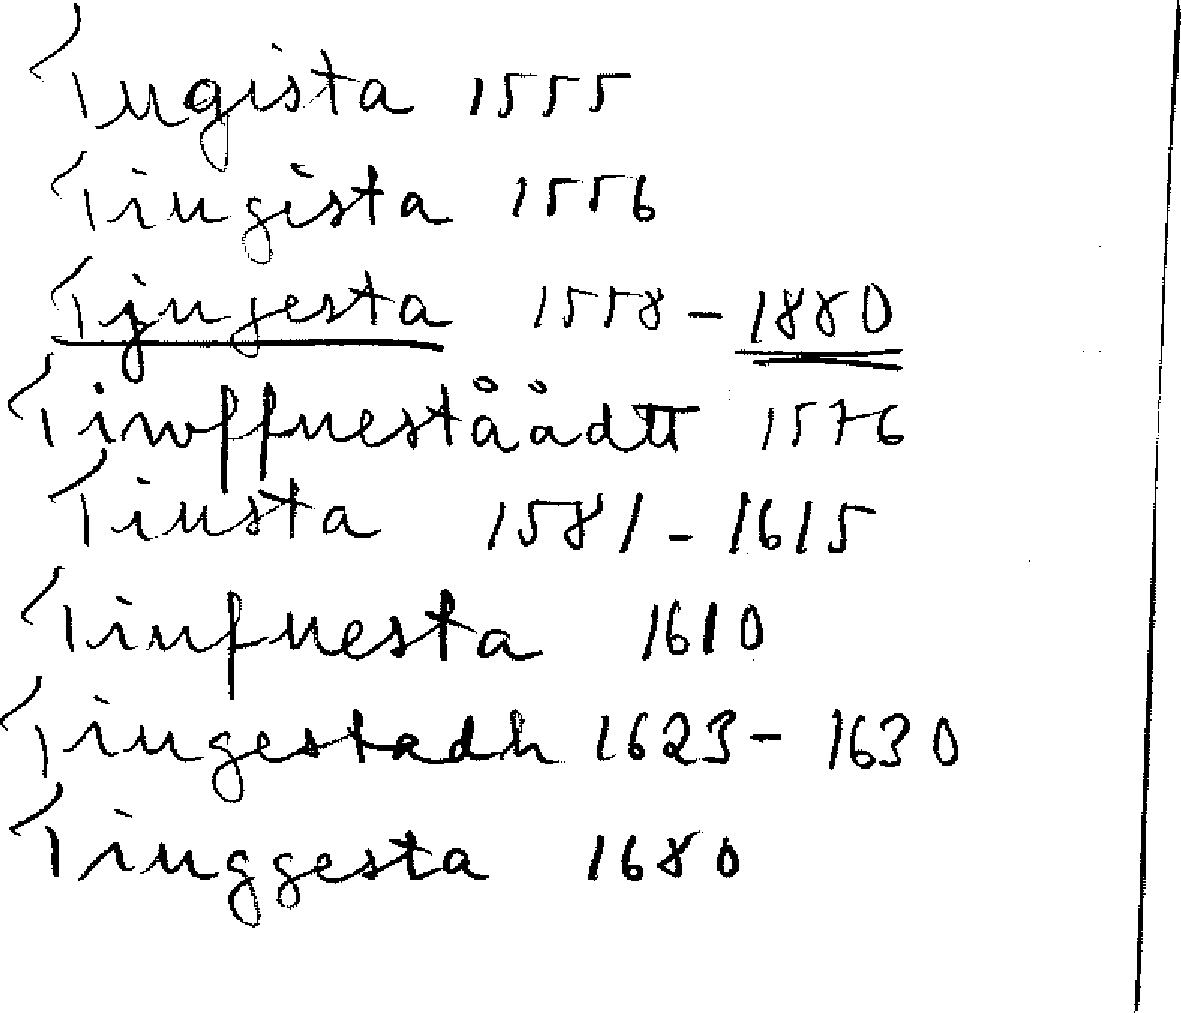 Tugista 1555
Tiugista 1556
Tjugesta 1558 - 1880
Tiwffneståådtt 1576
Tiusta 1581 - 1615
Tiufnesta 1610
Tiugestadh 1623 - 1630
Tiuggesta 1680